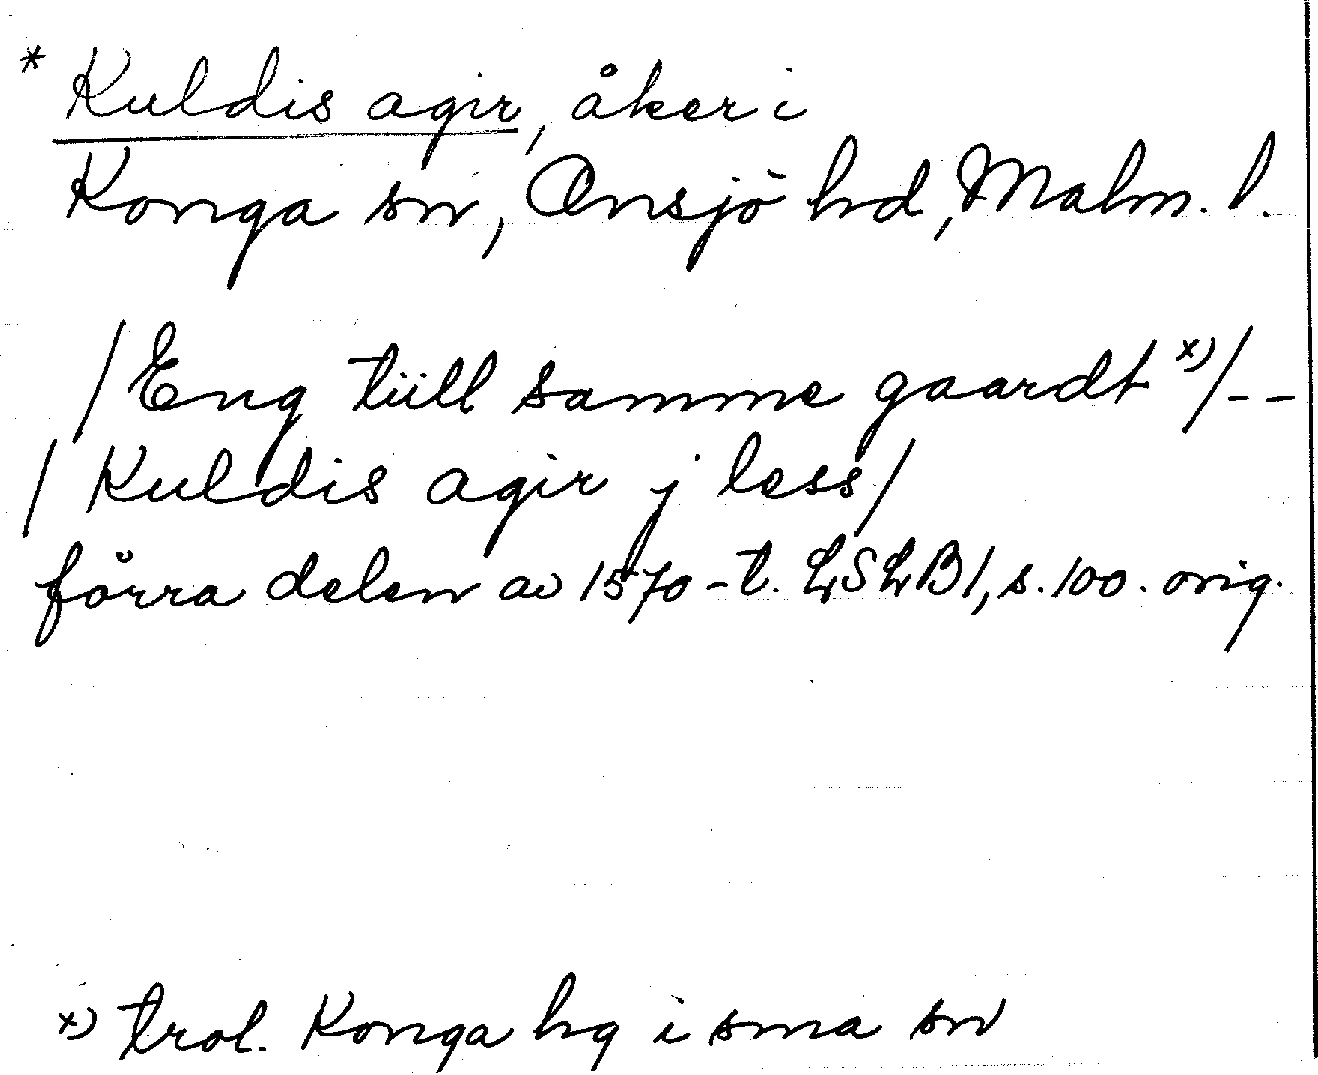 * Kuldis agir, åker i
Konga sn, Onsjö hd, Malm. l.
/Eng tiill samme gaardt x)/--
/Kuldis agir j less/
förra delen av 1570-t. LSLB1, s. 100. orig.
x) trol. Konga hg i sma sn